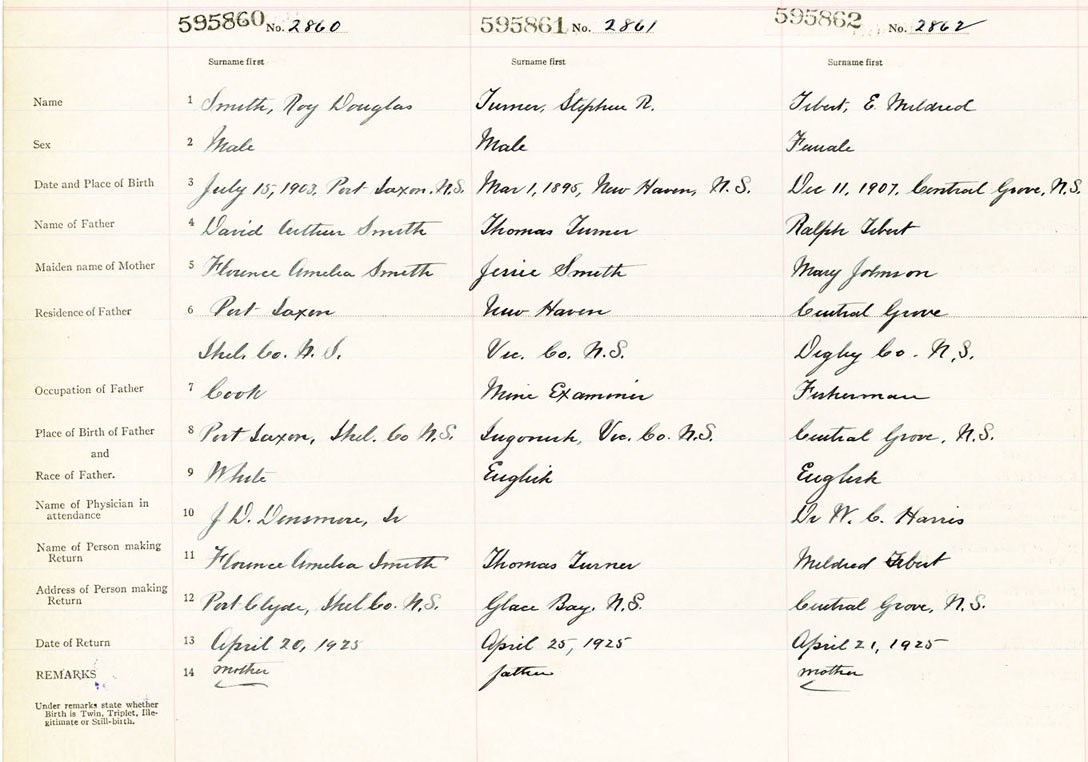 595860 No. 2860 595861 No. 2861 595862 No. 2862
Surname first Surname first Surname first
Name 1 Smith, Roy Douglas Turner, Stephen R. Tibert, E. Mildred
Sex 2 Male Male Female
Date and Place of Birth 3 July 15, 1903, Port Saxon, N.S. Mar 1, 1895, New Haven, N.S. Dec 11, 1907, Central Grove, N.S.
Name of Father 4 David Arthur Smith Thomas Turner Ralph Tibert
Maiden name of Mother 5 Florence Amelia Smith Jessie Smith Mary Johnson
Residence of Father 6 Port Saxon New Haven Central Grove
Shel. Co. N.S. Vic. Co. N.S. Digby Co. N.S.
Occupation of Father 7 Cook Mine Examiner Fisherman
Place of Birth of Father 8 Port Saxon, Shel. Co N.S. Ingonish, Vic. Co. N.S. Central Grove, N.S.
and
Race of Father. 9 White English English
Name of Physician in
attendance 10 J D. Densmore, Dr Dr W. C. Harris
Name of Person making
Return 11 Florence Amelia Smith Thomas Turner Mildred Tibert
Address of Person making
Return 12 Port Clyde, Shel Co. N.S. Glace Bay, N.S. Central Grove, N.S.
Date of Return 13 April 20, 1925 April 25, 1925 April 21, 1925
REMARKS 14 mother father mother
Under remarks state whether
Birth is Twin, Triplet, Ille-
gitimate or Still-birth.